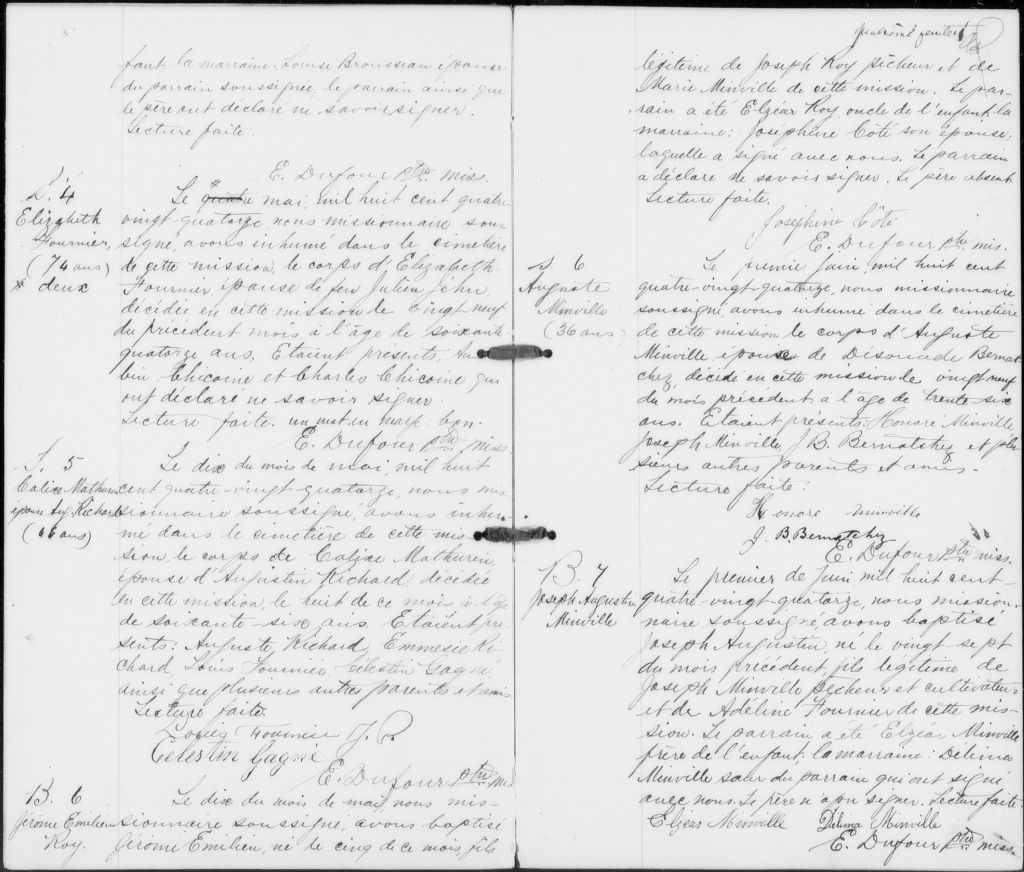 fant la marraine: Louise Brousseau épouse
du parrain soussignée, le parrain ainsi que
le père ont déclaré ne savoir signer.
Lecture faite.
E. Dufour ptre miss.
S. 4
Elizabeth
Fournier,
(74 ans)
* deux
Le quatre * mai, mil huit cent quatre
vingt-quatorze, nous missionnaire sous-
signé, avons inhumé dans le cimetière
de cette mission, le corps d'Elizabeth
Fournier épouse de feu Julien
décidée en cette mission le vingt neuf
du précédent mois à l'âge de soixante
quatorze ans. Etaient présents: Au-
bin Chicoine et Charles Chicoine qui
ont déclaré ne savoir signer.
Lecture faite. un mot en marge: bon.
E. Dufour ptre, miss.
S. 5
Calixe Mathurin
épouse Aug. Richard
(66 ans)
Le dix du mois de mai, mil huit
cent quatre-vingt-quatorze, nous mis-
sionnaire soussigné, avons inhu-
mé dans le cimetière de cette mis-
sion, le corps de Calixe Mathurin,
épouse d'Augustin Richard décédée
en cette mission, le huit de ce mois à l'âge
de soixante-six ans. Etaient pré-
sents: Auguste Richard, Emmesie Ri-
chard, Louis Fournier, Célestin Gagné,
ainsi que plusieurs autres parents et amis
Lecture faite.
Louis Fournier J. P.
Celestin Gagné
E. Dufour ptre mis
B. 6
Jérome Emilien
Roy.
Le dix du mois de mai, nous mis-
sionnaire soussigné, avons baptisé
Jérome Emilien, né le cinq de ce mois, fils
feuillet
légitime de Joseph Roy pêcheur et de
Marie Minville de cette mission. Le par-
rain a été Elzéar Roy, oncle de l'enfant, la
marraine: Joséphine Côté son épouse,
laquelle a signé avec nous. Le parrain
a déclaré ne savoir signer. Le père absent
Lecture faite.
Joséphine Côté
E. Dufour ptre mis.
S. 6
Auguste
Minville
(36 ans)
Le premier Juin, mil huit cent
quatre-vingt-quatorze, nous missionnaire
soussigné, avons inhumé dans le cimetière
de cette mission le corps d'Auguste
Minville, époux de Bernat
chez, décidé en cette mission le vingt neuf
du mois précédent à l'âge de trente six
ans. Etaient présents: Honoré Minville
Joseph Minville, J. B. Bernatchez et plu
sieurs autres parents et amis.
Lecture faite.
Honore minville
J. B. Bernatchez
E. Dufour ptre miss.
B. 7
Joseph-Augustin
Minville
Le premier de Juin mil huit cent-
quatre-vingt-quatorze, nous mission-
naire soussigné, avons baptisé
Joseph Augustin, né le vingt sept
du mois précédent, fils légitime de
Joseph Minville pêcheur et cultivateur
et de Adéline Fournier de cette mis-
sion. Le parrain a été Elzéar Minville
frère de l'enfant; la marraine: Délima
Minville sœur du parrain qui ont signé
avec nous. Le père n'a pu signer. Lecture faite.
Elzear Minville Delima Minville
E. Dufour ptre miss.